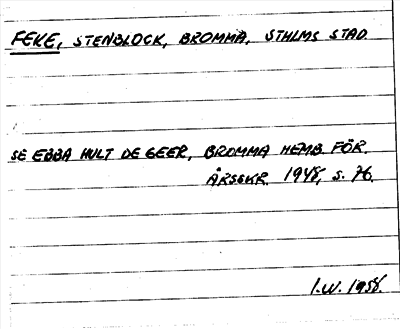 FEKE, STENBLOCK, BROMMA, STHLMS STAD.
SE EBBA HULT DE GEER, BROMMA HEMB. FÖR.
ÅRSSKR. 1948, s. 76.
I.W. 1958.